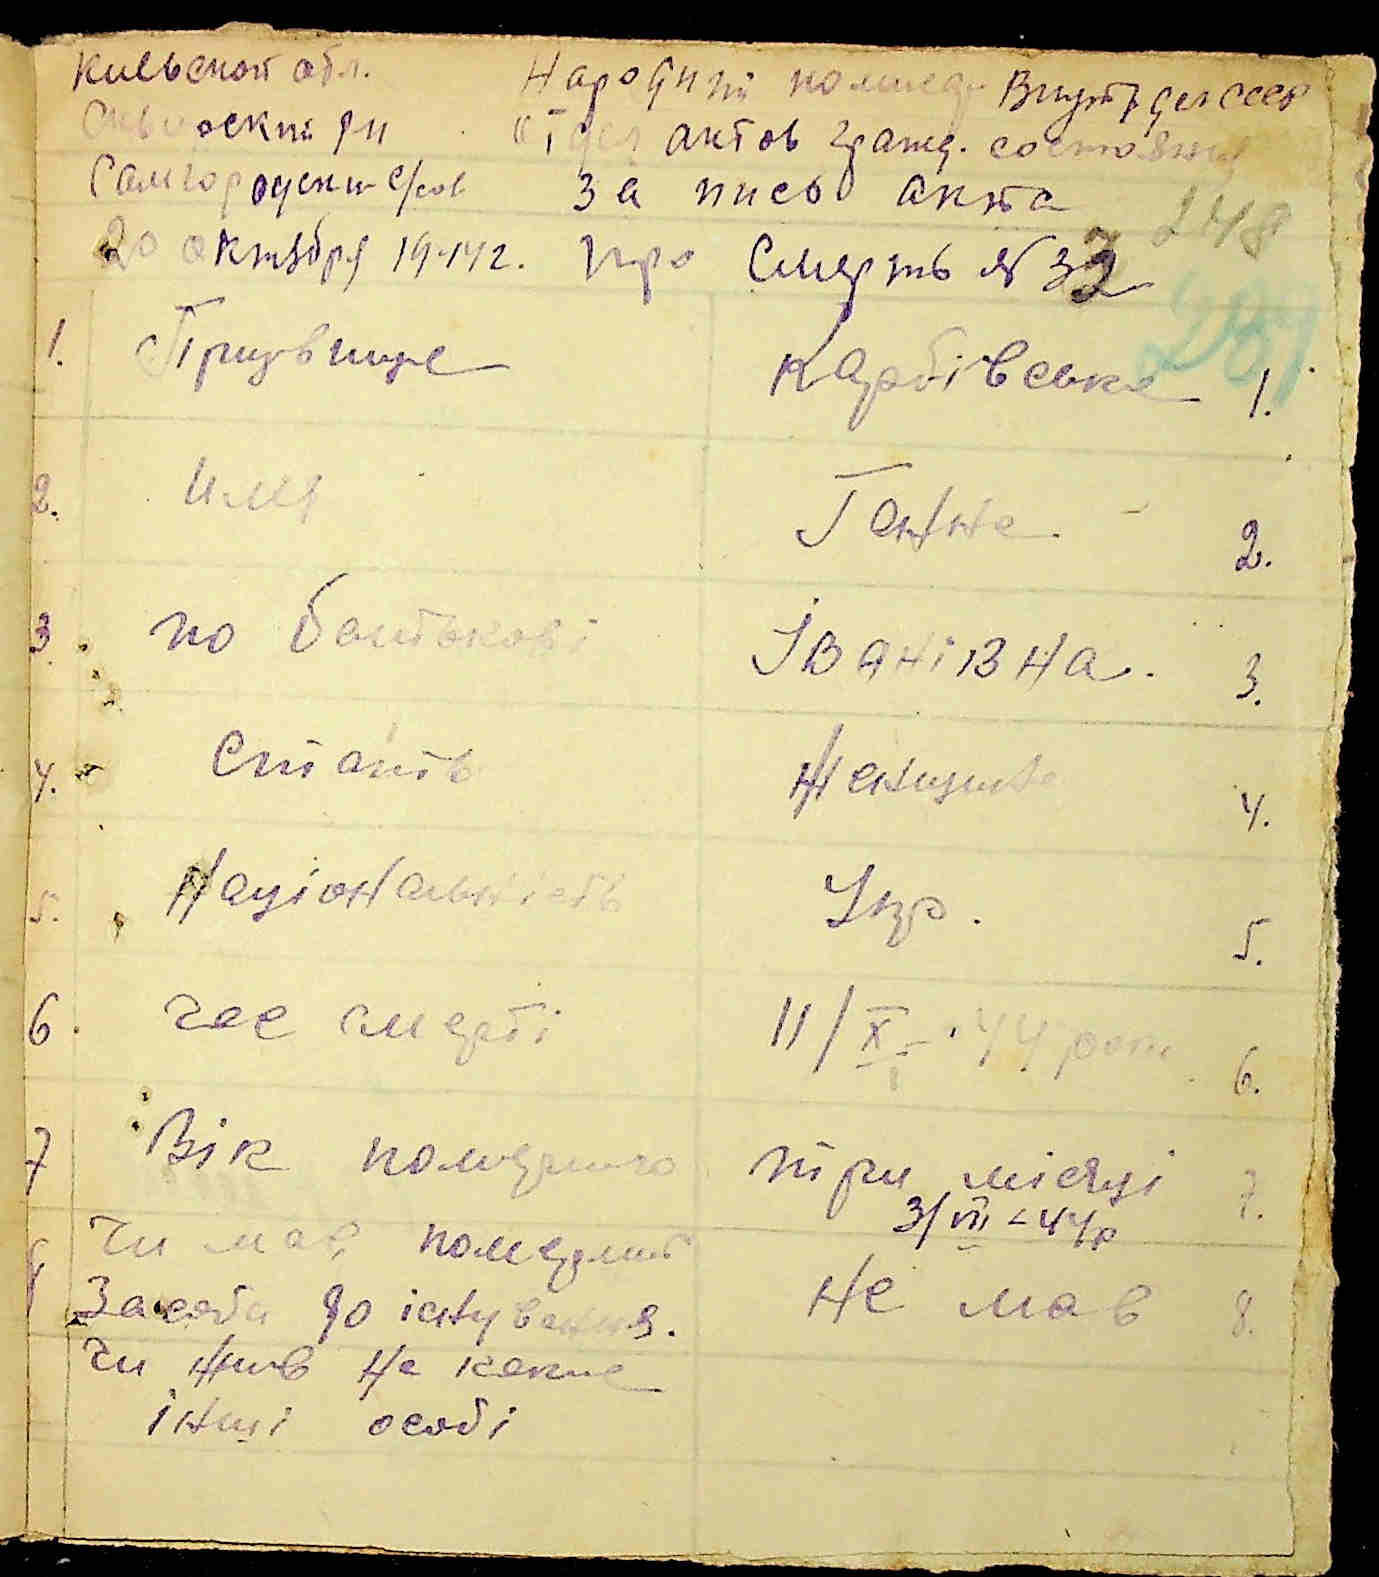 Киевской обл. Народний комисар Внутр дел СССР
Сквирский р-н отдел актов гражд. состояния
Самгородский с/сов запись акта 248
20 октября 1944 г. про Смерть № 32
1. Прізвище Карбівська 1.
2. имя Ганна 2.
3. по батькові Іванівна. 3.
4. Стать Женщина 4.
5. Національність Укр. 5.
6. час смерті 11/X - 44 року 6.
7 Вік помершого три місяці 7.
3/VII - 44 р
8 чи мав померший
Засоби до існування. не мав 8.
чи жив на
інші особі